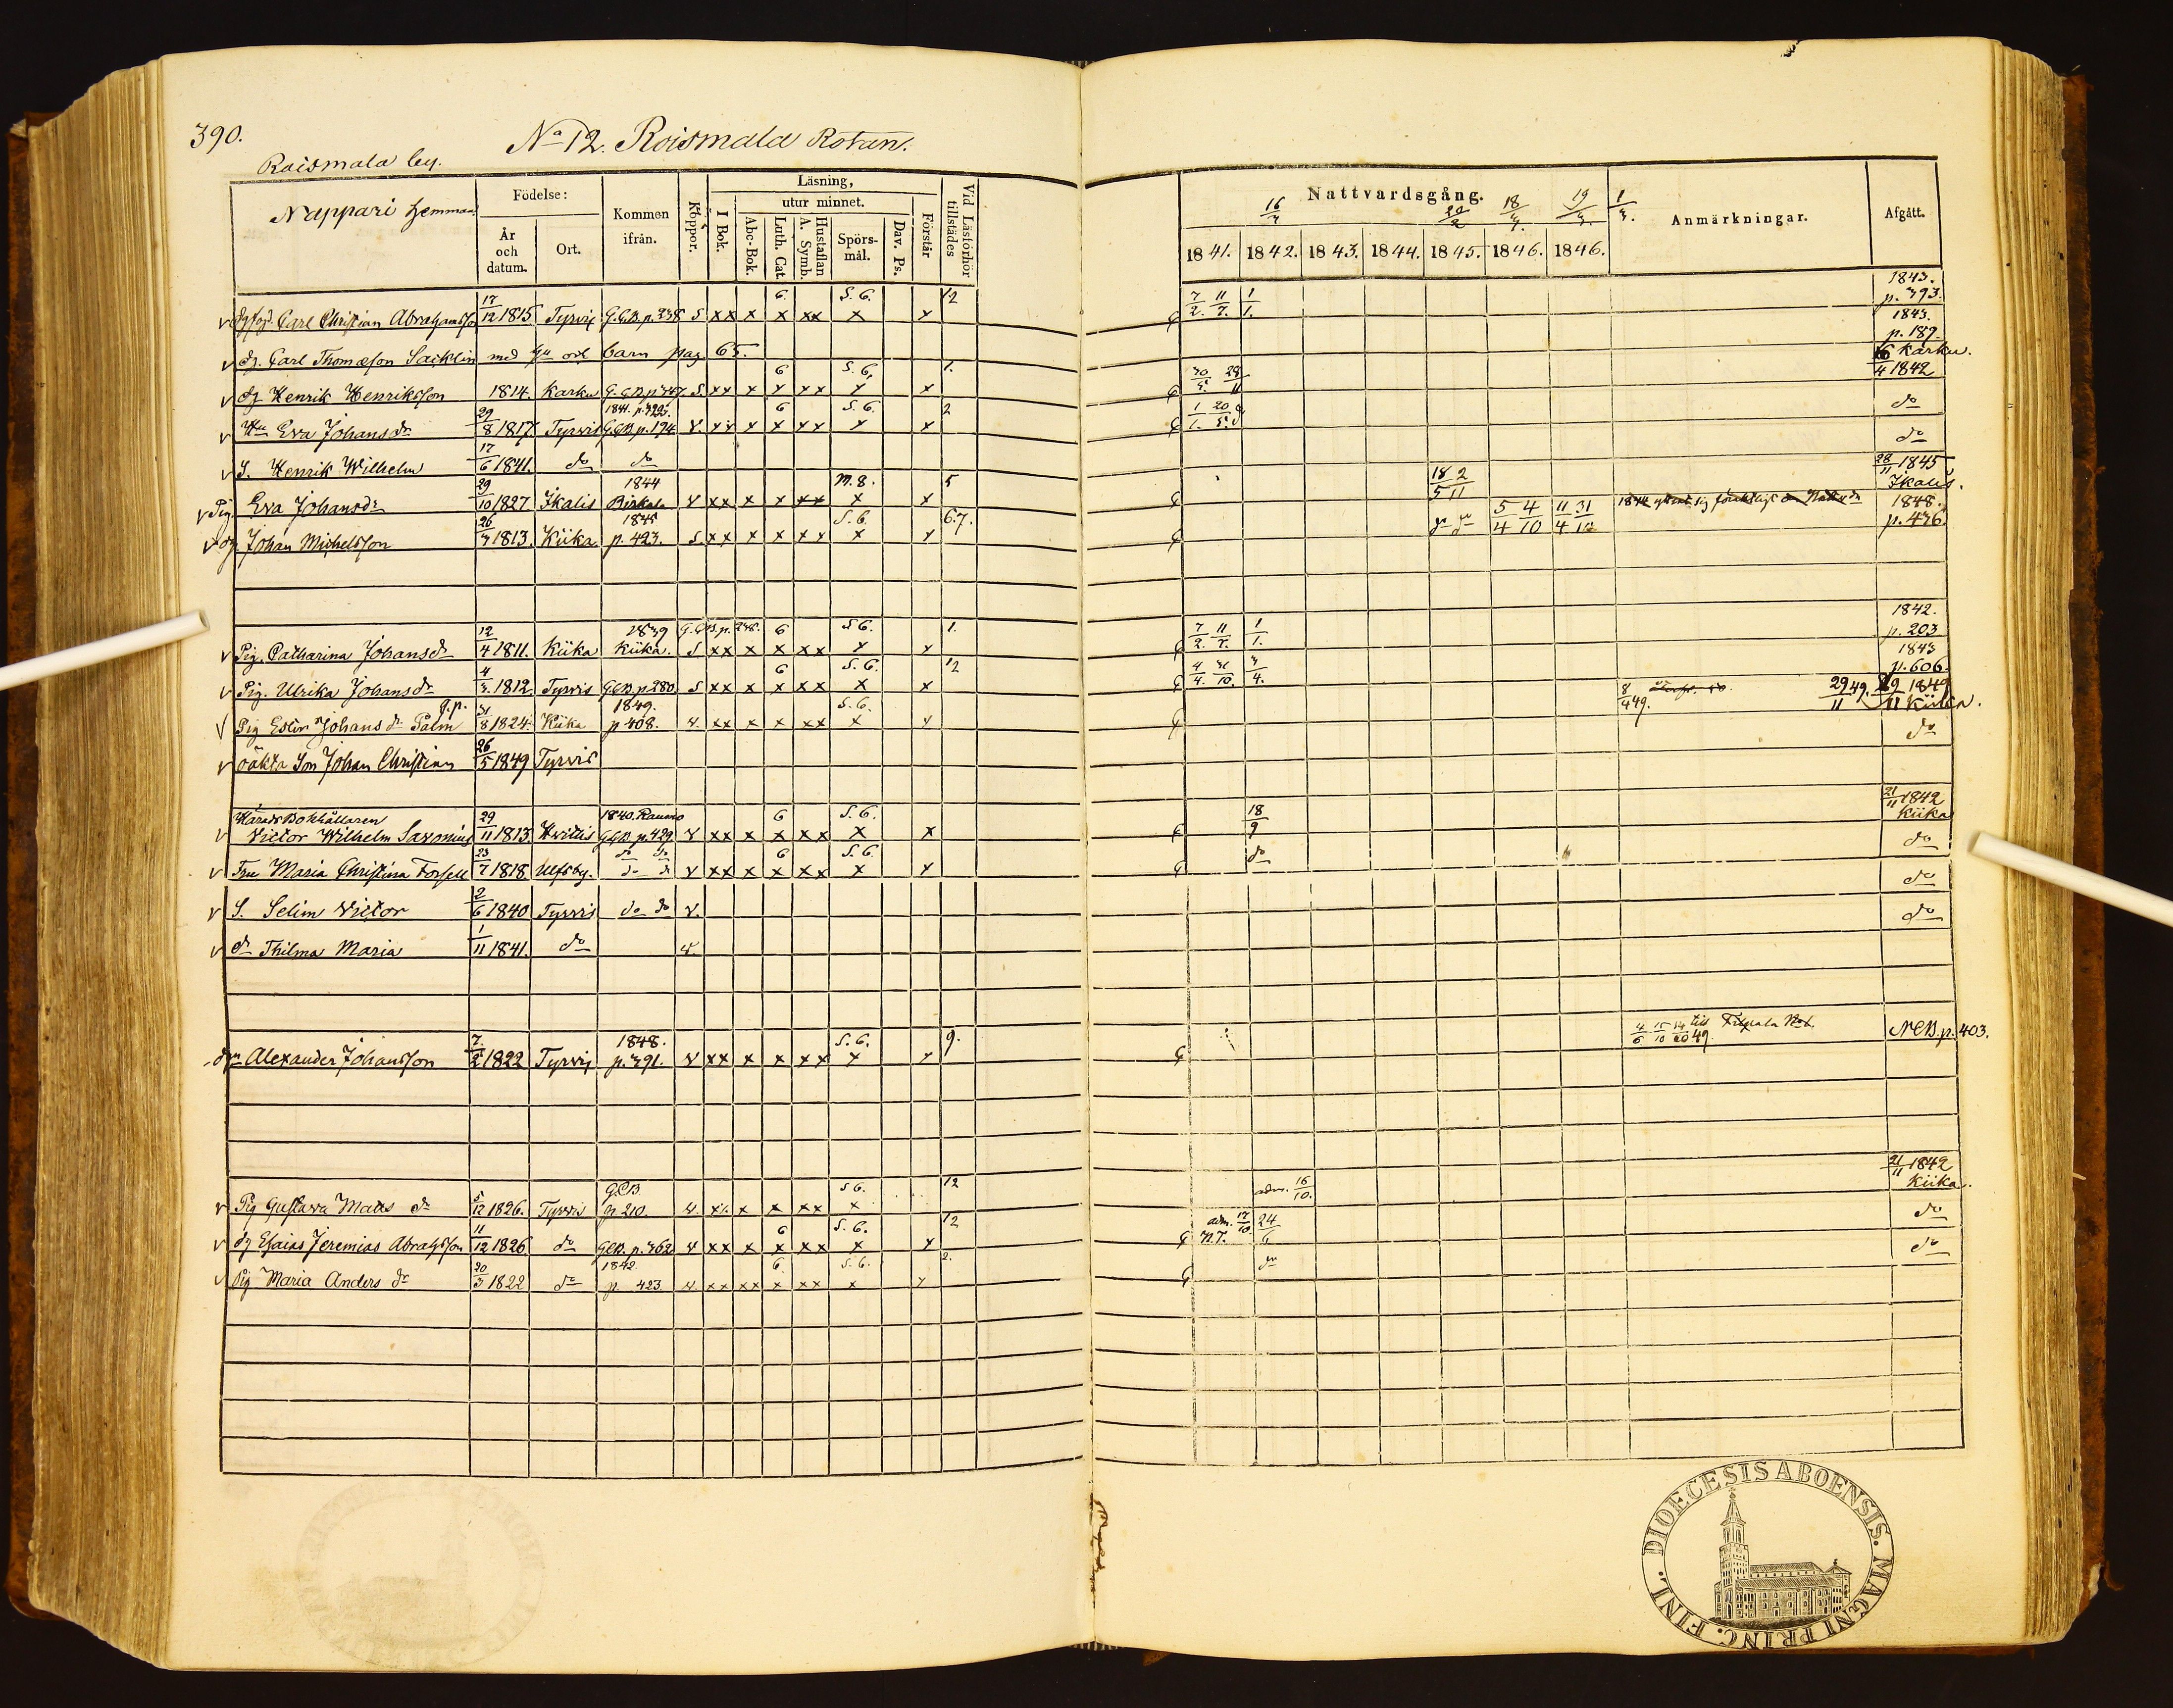 390.
No 12. Roismala Rotan.
Roismala by.
Nappari Hemman
Födelse:
År och datum.
Ort.
Kommen ifrån.
Koppor.
Läsning,
I Bok.
utur minnet.
Abc-Bok.
Luth. Cat.
Hustaflan A. Symb.
Spörsmål.
Dav. Ps.
Förstår
Vid Läsförhör tillstädes
Nattvardsgång.
16/3 20/2 18/4. 19/3. 1/3.
1841. 1842. 1843. 1844. 1845. 1846. 1846.
Anmärkningar.
Afgått.
Carl Christian 17/12 1815 Tyrvis G.C.B. p. 238 S xx x x xx x x 6. S. 6. 12 7/2. 11/7. 1/1. 1843. p. 393.
dg. Carl Thomæson Säcklin med hu och barn pag. 65. 1843. p. 189.
dg Henrik Henriksson 1814. Karku S. xx x x xx x x 6 S. 6. 1. 30/5. 28/11 Karku. 4 1842
Hu Eva Johansdr 29/8 1817 Tyrvis G.C.B. p. 194. V. xx x x xx x x 6 S. 6. 2 1/1. 20/5. do
S. Henrik Wilhelm 17/6 1841. do do do
Pig. Eva Johansdr 29/10 1827 Ikalis 1844 Birkala V xx x x xx x x M. 8. 5 18/5 2/11 28/11 1845 Ikalis.
dg. Johan Michelsson 26/3 1813. Kiika 1845 p. 423. S. xx x x xx x x S. 6. 6.7. 5/4 4/10 11/4 31/10 1848. p. 436.
Pig. Catharina Johansdr 12/4 1811. Kiika 1839 Kiika. G.C.B. p. 238. S xx x x xx x x 6 S. 6. 1. 7/2. 11/7. 1/1. 1842. p. 203
Pig. Ulrika Johansdr 4/3. 1812. Tyrvis G.C.B. p. 280 S xx x x xx x x 6 S. 6. 12 4/4. 31/10. 3/4. 1843 p. 606.
Pig Eslin Johansdr Palm 31/8 1824. Kiika 1849. p 408. V. xx x x xx x x S. 6. 29/11 49. 1849 Kiika.
oäkta Son Johan Christian 26/5 1849 Tyrvis do
Härads Bokhållaren
Victor Wilhelm Saxonius 29/11 1813. Hvittis 1840. Raumo G.C.B. p. 429 V xx x x xx x x 6 S. 6. 18/9 21/11 1842 Kiika
Fru Maria Christina Forsell 23/7 1818 Ulfsby. do do V xx x x xx x x 6 S. 6. do do
S. Selim Victor 2/6 1840 Tyrvis do do V. do
dr Thilma Maria 1/11 1841. do V. do
Alexander Johansson 7./2 1822 Tyrvis 1848. p. 391. V xx x x xx x x S. 6. 9. 49. N.C.B. p. 403.
Pig Gustava Mattsdr 5/12 1826. Tyrvis G.C.B. p 210. V. x x xx x S. 6. 12 adm. 16/10. 21/11 1842 Kiika.
dg Esaias Jeremias Abrahsson 11/12 1826 do G.C.B. p. 362 V xx x x xx x x 6 S. 6. 12 adm. 17/10 24/6 do
Pig Maria Andersdr 20/3 1822 do 1842. p. 423. V. xx xx x xx x 6 S. 6. 2. do do
DIOECESIS ABOENSIS. MAGNI PRINC. FINL.